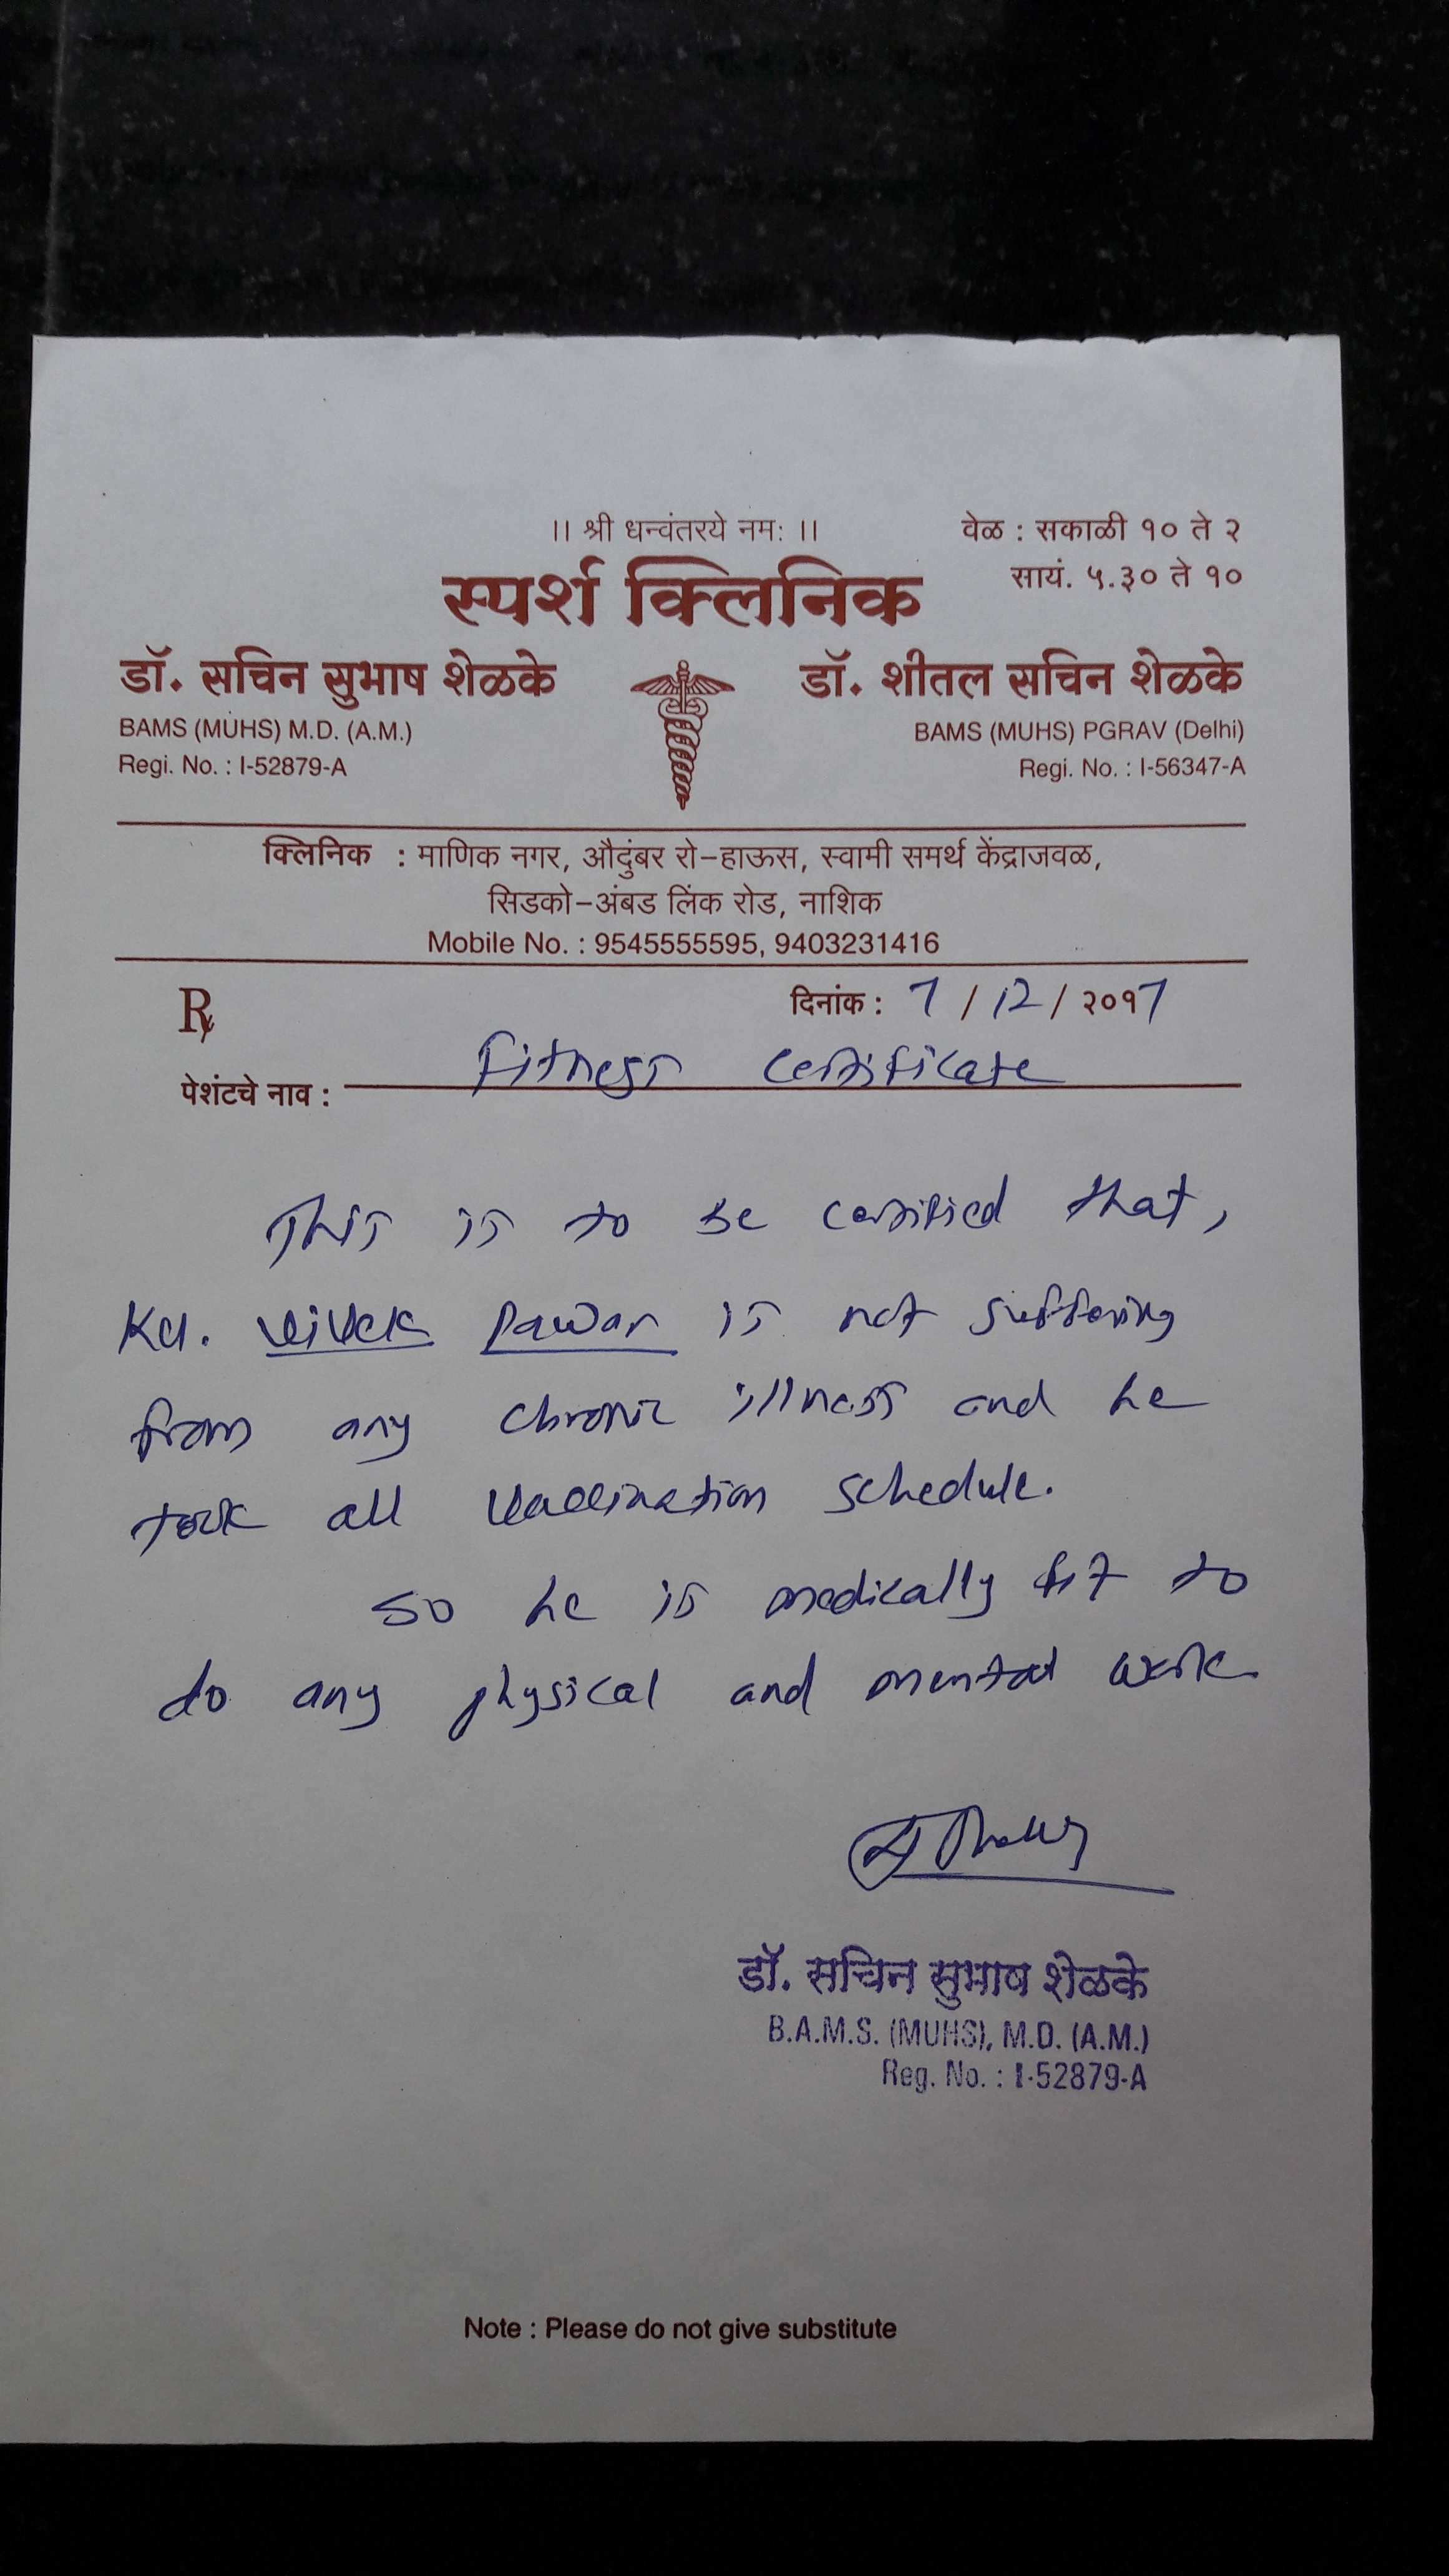 ।। श्री धन्वंतरये नमः ।।
वेळ : सकाळी १० ते २
सायं. ५.३० ते १०
स्पर्श क्लिनिक
डॉ. सचिन सुभाष शेळके
BAMS (MUHS) M.D. (A.M.)
Regi. No. : I-52879-A
डॉ. शीतल सचिन शेळके
BAMS (MUHS) PGRAV (Delhi)
Regi. No. : I-56347-A
क्लिनिक : माणिक नगर, औदुंबर रो-हाऊस, स्वामी समर्थ केंद्राजवळ,
सिडको-अंबड लिंक रोड, नाशिक
Mobile No. : 9545555595, 9403231416
℞
दिनांक : 7 / 12 / २०१7
Fitness Certificate
पेशंटचे नाव :
This is to be certified that,
Ku. Vivek Pawar is not suffering
from any chronic illness and he
took all Vaccination schedule.
so he is medically fit to
do any physical and mental work
डॉ. सचिन सुभाष शेळके
B.A.M.S. (MUHS), M.D. (A.M.)
Reg. No. : I-52879-A
Note : Please do not give substitute